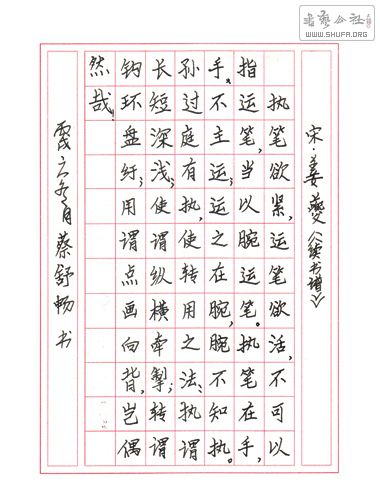 书艺公社
WWW.SHUFA.ORG
宋·姜夔《续书谱》
执笔欲紧,运笔欲活,不可以
指运笔,当以腕运笔。执笔在手,
手不主运;运之在腕,腕不知执。
孙过庭有执,使转用之法:执谓
长短深浅;使谓纵横牵掣;转谓
钩环盘纡;用谓点画向背,岂偶
然哉!
冬月蔡舒畅书